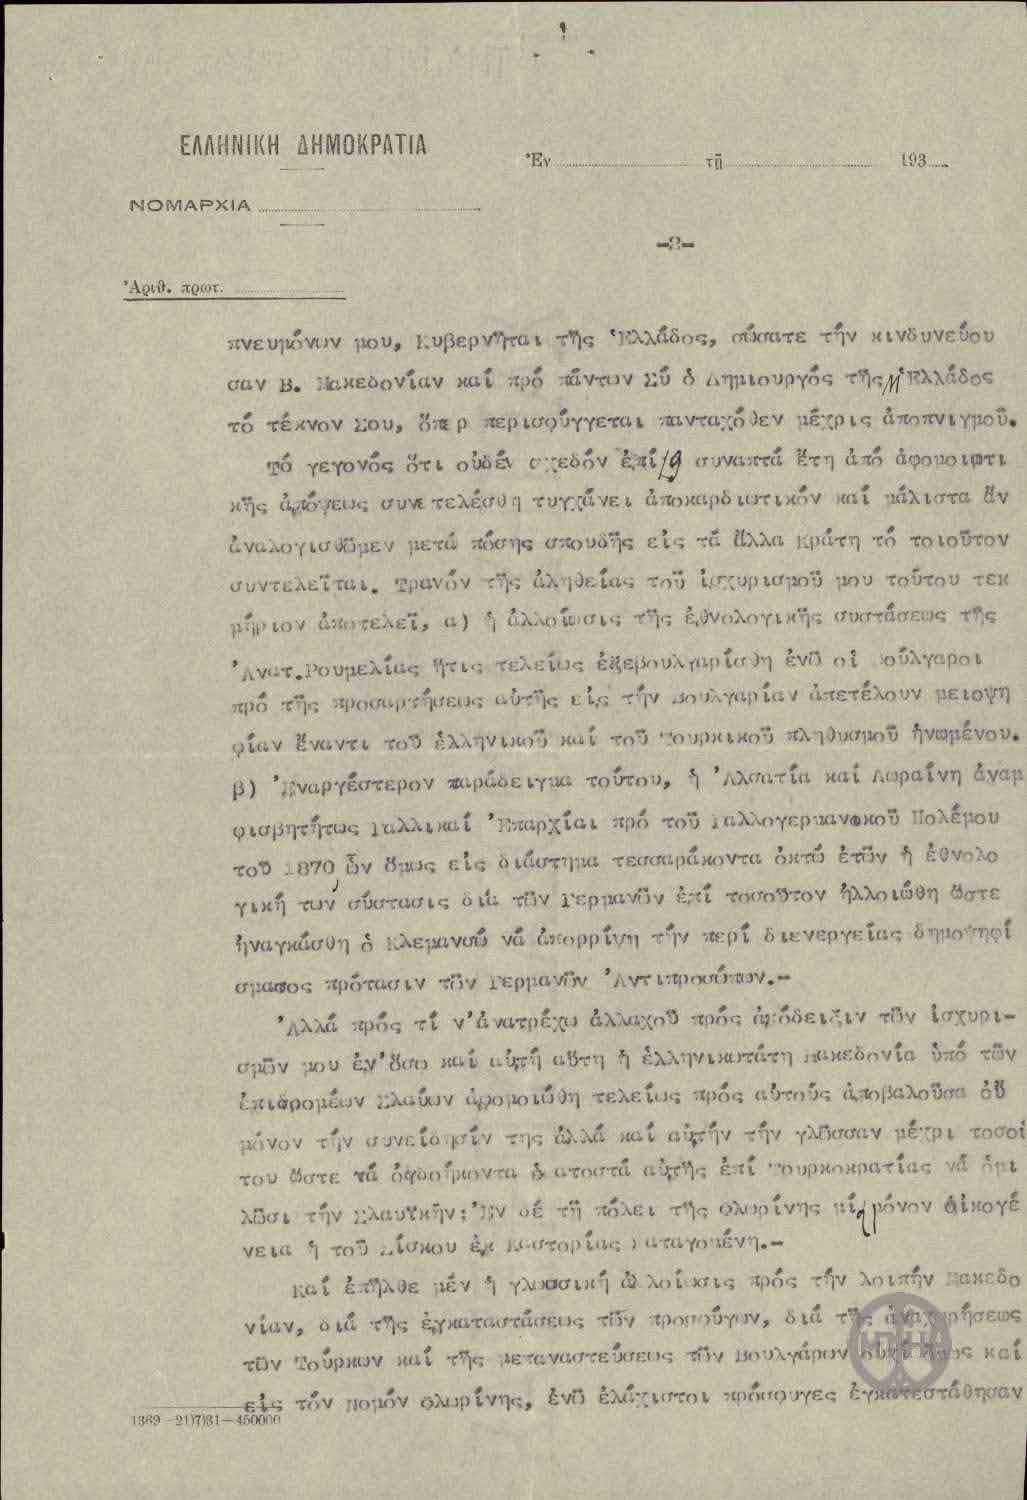 ΕΛΛΗΝΙΚΗ ΔΗΜΟΚΡΑΤΙΑ
Ἐν τῇ 193
ΝΟΜΑΡΧΙΑ
-2-
Ἀριθ. πρωτ.
πνευμόνων μου, Κυβερνῆται τῆς Ἑλλάδος, σώσατε τήν κινδυνεύου
σαν Β. Μακεδονίαν καί πρό πάντων Σύ ὁ Δημιουργός τῆς Μ Ἑλλάδος
τό τέκνον Σου, ὅπερ περισφύγγεται πανταχόθεν μέχρις ἀποπνιγμοῦ.
Τό γεγονός ὅτι οὐδέν σχεδόν ἐπί 19 συναπτά ἔτη ἀπό ἀφομοιωτι
κῆς ἀπόψεως συνετελέσθη τυγχάνει ἀποκαρδιωτικόν καί μάλιστα ἄν
ἀναλογισθῶμεν μετά πόσης σπουδῆς εἰς τά ἄλλα Κράτη τό τοιοῦτον
συντελεῖται. Τρανόν τῆς ἀληθείας τοῦ ἰσχυρισμοῦ μου τούτου τεκ
μήριον ἀποτελεῖ, α) ἡ ἀλλοίωσις τῆς ἐθνολογικῆς συστάσεως τῆς
Ἀνατ.Ρουμελίας ἥτις τελείως ἐξεβουλγαρίσθη ἐνῶ οἱ Βούλγαροι
πρό τῆς προσαρτήσεως αὐτῆς εἰς τήν Βουλγαρίαν ἀπετέλουν μειοψη
φίαν ἔναντι τοῦ ἑλληνικοῦ καί τοῦ Τουρκικοῦ πληθυσμοῦ ἡνωμένου.
β) Ἐναργέστερον παράδειγμα τούτου, ἡ Ἀλσατία καί Λωραίνη ἀναμ
φισβητήτως Γαλλικαί Ἐπαρχίαι πρό τοῦ Γαλλογερμανικοῦ Πολέμου
τοῦ 1870, ὧν ὅμως εἰς διάστημα τεσσαράκοντα ὀκτώ ἐτῶν ἡ ἐθνολο
γική των σύστασις διά τῶν Γερμανῶν ἐπί τοσοῦτον ἠλλοιώθη ὥστε
ἠναγκάσθη ὁ Κλεμανσώ νά ἀπορρίψη τήν περί διενεργείας δημοψηφί
σματος πρότασιν τῶν Γερμανῶν Ἀντιπροσώπων.-
Ἀλλά πρός τί ν'ἀνατρέχω ἀλλαχοῦ πρός ἀπόδειξιν τῶν ἰσχυρι-
σμῶν μου ἐν'ὅσω καί αὐτή αὕτη ἡ ἑλληνικωτάτη Μακεδονία ὑπό τῶν
ἐπιδρομέων Σλαύων ἀφομοιώθη τελείως πρός αὐτούς ἀποβαλοῦσα οὐ
μόνον τήν συνείδησίν της ἀλλά καί αὐτήν τήν γλῶσσαν μέχρι τοσού
του ὥστε τά ὀγδοήκοντα ἑκατοστά αὐτῆς ἐπί Τουρκοκρατίας νά ὁμι
λῶσι τήν Σλαυϊκήν; Ἐν δέ τῇ πόλει τῆς Φλωρίνης μία μόνον οἰκογέ
νεια ἡ τοῦ Πίσκου ἐκ Καστορίας καταγομένη.-
Καί ἐπῆλθε μέν ἡ γλωσσική ἀλλοίωσις πρός τήν λοιπήν Μακεδο
νίαν, διά τῆς ἐγκαταστάσεως τῶν προσφύγων, διά τῆς ἀναχωρήσεως
τῶν Τούρκων καί τῆς μεταναστεύσεως τῶν Βουλγάρων καί
εἰς τόν Νομόν Φλωρίνης, ἐνῶ ἐλάχιστοι πρόσφυγες ἐγκατεστάθησαν
1369 -21)7)31-450000